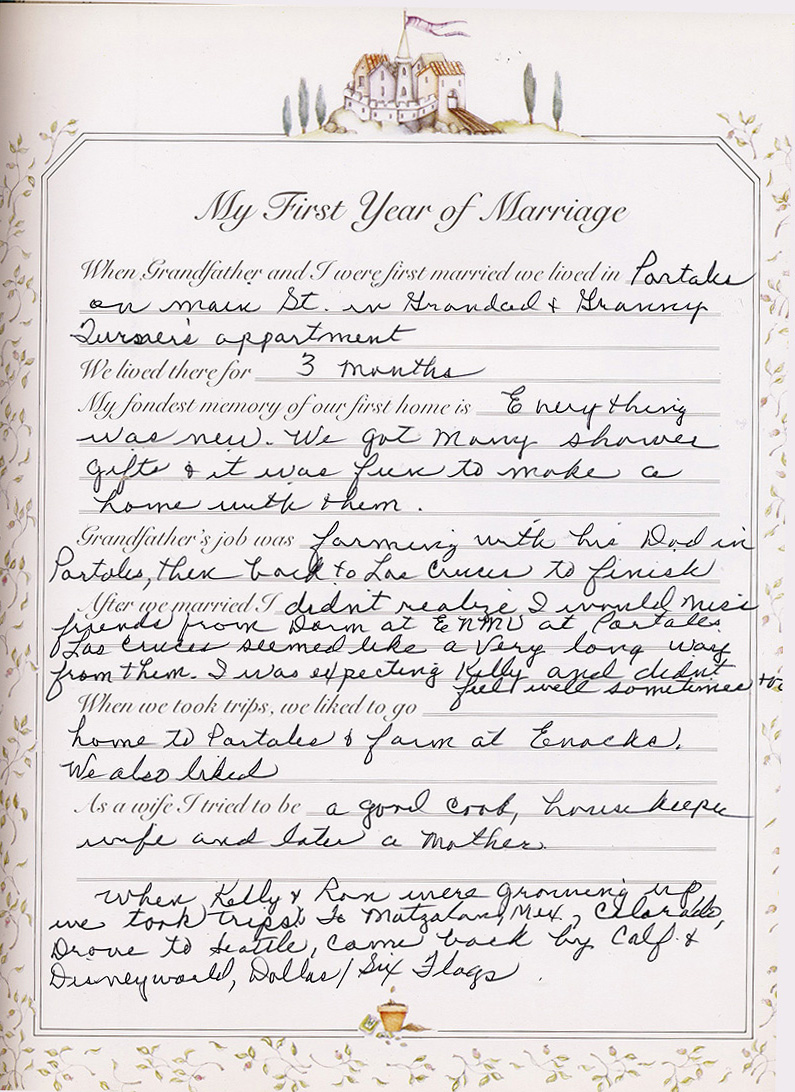 My First Year of Marriage
When Grandfather and I were first married we lived in Portales
on main St. in Grandad & Granny
Turner's appartment
We lived there for 3 months
My fondest memory of our first home is Everything
was new. We got many shower
gifts & it was fun to make a
home with them.
Grandfather's job was farming with his Dad in
Portales, then back to Las Cruces to finish
After we married I didn't realize I would miss
friends from Dorm at ENMU at Portales.
Las Cruces seemed like a very long way
from them. I was expecting Kelly and didn't
feel well sometimes too
When we took trips, we liked to go
home to Portales & farm at Enochs.
We also liked
As a wife I tried to be a good cook, housekeeper
wife and later a mother.
When Kelly & Ron were growing up
we took trips to Matzatan, Mex., Colorado,
Drove to Seattle, came back by Calf. &
Disneyworld, Dallas/Six Flags.